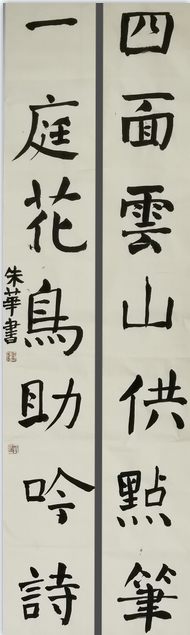 四面雲山供點筆
一庭花鳥助吟詩
朱華書